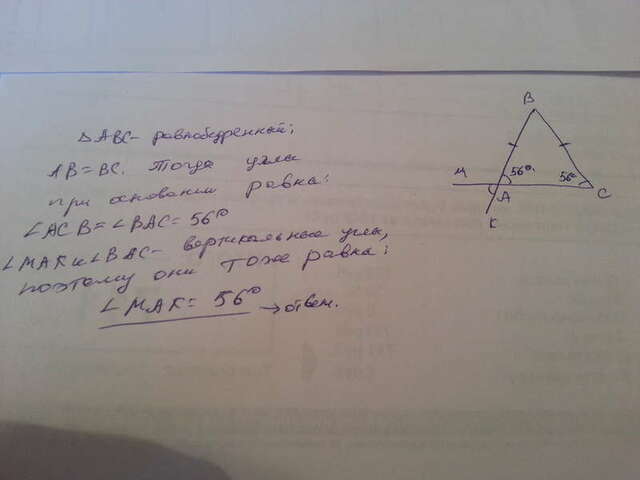 Δ ABC - равнобедренный;
AB = BC. Тогда углы
при основании равны:
∠ACB = ∠BAC = 56°
∠MAK и ∠BAC - вертикальные углы,
поэтому они тоже равны;
∠MAK = 56° → ответ.
B
M
A
K
C
56°
56°